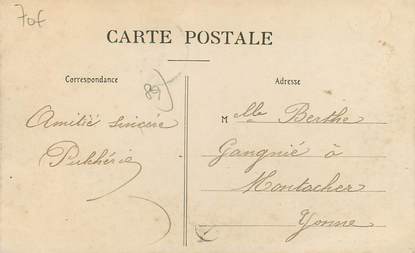 70f
CARTE POSTALE
Correspondance
89
Adresse
Amitié sincère
Pulchérie
Melle Berthe
Gangnié à
Montacher
Yonne